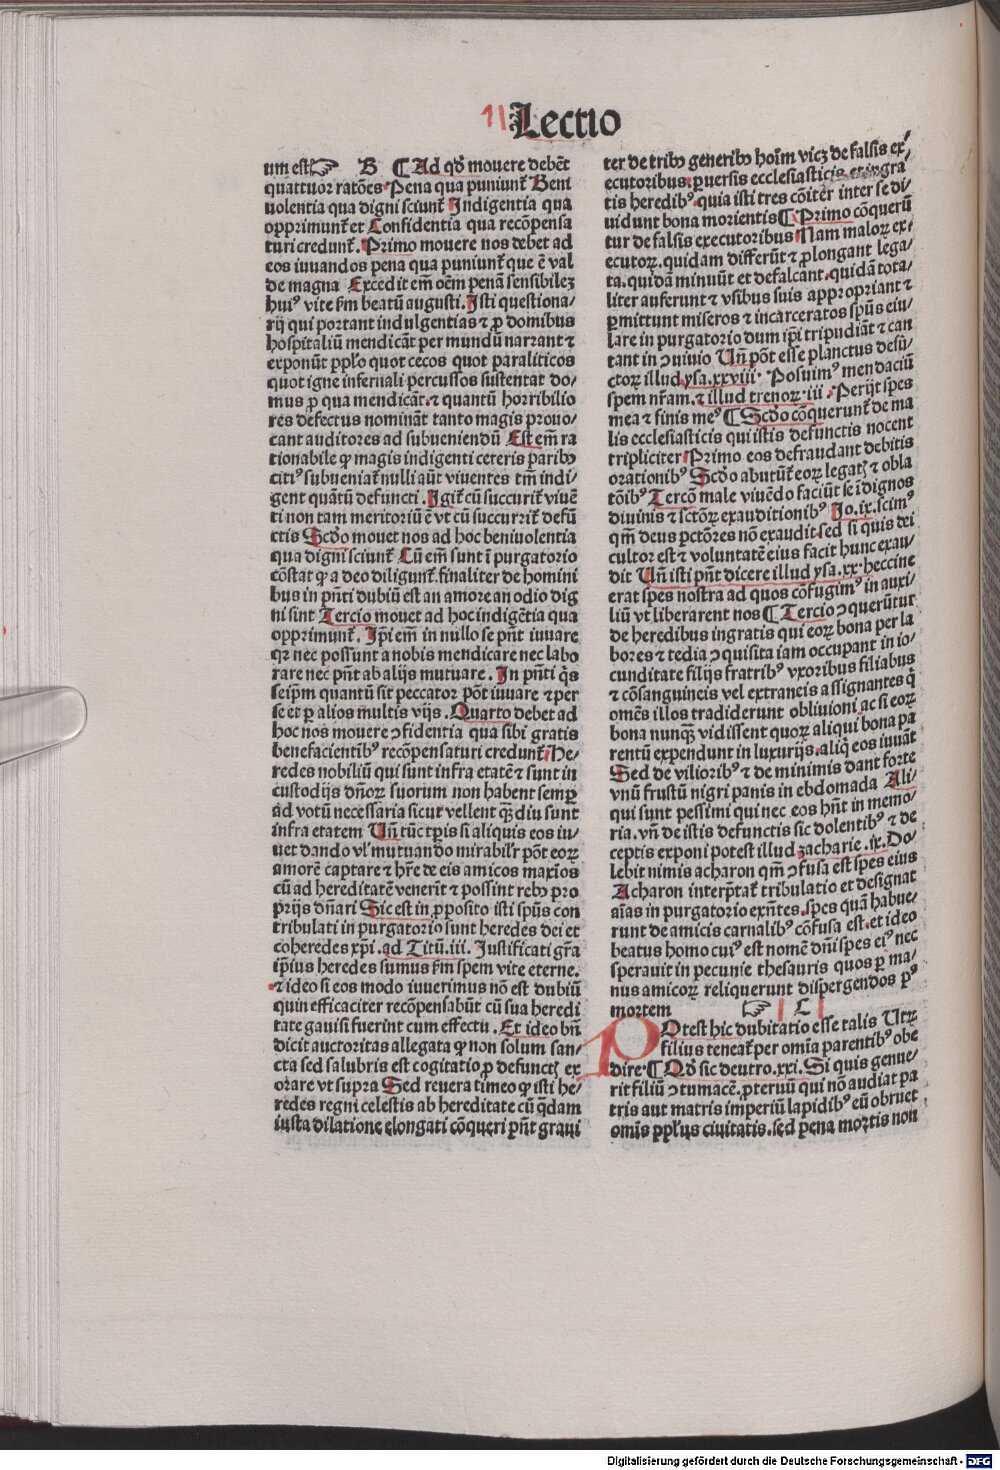 11 Lectio
um est ☞ B ¶ Ad qđ mouere debēt
quattuor ratōes. Pena qua puniunt̄ Beni
uolentia qua digni sciunt̄ Indigentia qua
opprimunt̄ et Confidentia qua recōpensa
turi credunt̄. Primo mouere nos debet ad
eos iuuandos pena qua puniunt̄ que ē val
de magna Excedit em̄ oēm penā sensibilez
huiꝰ vite ẜm beatū augusti. Isti questiona/
rij qui portant indulgentias ⁊ ꝓ domibus
hospitaliū mendicāt per mundū narrant ⁊
exponūt ppl̓o quot cecos quot paraliticos
quot igne infernali percussos sustentat do/
mus ꝓ qua mendicāt. ⁊ quantū horribilio
res defectus nomināt tanto magis prouo/
cant auditores ad subueniendū Est em̄ ra
tionabile ꝙ magis indigenti ceteris paribꝫ
citiꝰ subueniat̄ nulli aūt viuentes tm̄ indi/
gent quātū defuncti. Igit̄ cū succurit̄ viuē
ti non tam meritoriū ē vt cū succurrit̄ defū
ctis Scd̓o mouet nos ad hoc beniuolentia
qua digni sciunt̄ Cū em̄ sunt ī purgatorio
cōstat ꝙ a deo diligunt̄. finaliter de homini
bus in pn̄ti dubiū est an amore an odio dig
ni sint Tercio mouet ad hoc indigētia qua
opprimunt̄. Ip̄i em̄ in nullo se pn̄t iuuare
qꝛ nec possunt a nobis mendicare nec labo
rare nec pn̄t ab alijs mutuare. In pn̄ti q̄s
seip̄m quantū sit peccator pōt iuuare ⁊ per
se et ꝑ alios multis vijs. Quarto debet ad
hoc nos mouere ↄfidentia qua sibi gratis
benefacientibꝰ recōpensaturi credunt̄ He/
redes nobiliū qui sunt infra etatē ⁊ sunt in
custodijs dn̄oꝝ suorum non habent semꝑ
ad votū necessaria sicut vellent qꝫdiu sunt
infra etatem Un̄ tūc tꝑis si aliquis eos iu/
uet dando vl̓ mutuando mirabilr̓ pōt eoꝝ
amorē captare ⁊ hr̄e de eis amicos maxīos
cū ad hereditatē venerīt ⁊ possint rebꝫ pro
prijs dn̄ari Sic est in ꝓposito isti spūs con
tribulati in purgatorio sunt heredes dei et
coheredes xp̄i. ad Titū. iii. Justificati gr̄a
ip̄ius heredes sumus ẜm spem vite eterne.
⁊ ideo si eos modo iuuerimus nō est dubiū
quin efficaciter recōpensabūt cū sua heredi
tate gauisi fuerint cum effectu. Et ideo bn̄
dicit auctoritas allegata ꝙ non solum san/
cta sed salubris est cogitatio ꝓ defunctꝭ ex
orare vt supra Sed reuera timeo ꝙ isti he/
redes regni celestis ab hereditate cū q̄dam
iusta dilatione elongati cōqueri pn̄t graui
ter de tribꝫ generibꝫ hoīm vicꝫ de falsis ex/
ecutoribus. ꝑuersis ecclesiasticis. et ingra
tis heredibꝰ. quia isti tres cōiter inter se di/
uidunt bona morientis ¶ Primo cōquerū
tur de falsis executoribus Nam maloꝝ ex/
ecutoꝝ. quidam differūt ⁊ ꝓlongant lega/
ta. quidā minuūt et defalcant. quidā tota/
liter auferunt ⁊ vsibus suis appropriant ⁊
ꝑmittunt miseros ⁊ incarceratos spūs eiu/
lare in purgatorio dum ip̄i tripudiāt ⁊ can
tant in ↄuiuio Un̄ pōt esse planctus defū/
ctoꝝ illud ysa. xxviii. Posuimꝰ mendaciū
spem nr̄am. ⁊ illud trenoꝝ. iii. Perijt spes
mea ⁊ finis meꝰ ¶ Scd̓o cōquerunt̄ de ma
lis ecclesiasticis qui istis defunctis nocent
tripliciter Primo eos defraudant debitis
orationibꝰ Scd̓o abutūt̄ eoꝝ legatꝭ ⁊ obla
tōibꝰ Tercō male viuēdo faciūt se īdignos
diuinis ⁊ sctōꝝ exauditionibꝰ Io. ix. scimꝰ
qm̄ deus pctōres nō exaudit. sed si quis dei
cultor est ⁊ voluntatē eius facit hunc exau/
dit Un̄ isti pn̄t dicere illud ysa. xx. heccine
erat spes nostra ad quos cōfugimꝰ in auxi/
liū vt liberarent nos ¶ Tercio ↄquerūtur
de heredibus ingratis qui eoꝝ bona per la
bores ⁊ tedia ↄquisita iam occupant in io/
cunditate filijs fratribꝰ vxoribus filiabus
⁊ cōsanguineis vel extraneis assignantes q̄
omēs illos tradiderunt obliuioni ac si eoꝝ
bona nunqꝫ vidissent quoꝝ aliqui bona pa
rentū expendunt in luxurijs. aliq̄ eos iuuāt
Sed de vilioribꝰ ⁊ de minimis dant forte
vnū frustū nigri panis in ebdomada Ali/
qui sunt pessimi qui nec eos hn̄t in memo/
ria. vn̄ de istis defunctis sic dolentibꝰ ⁊ de
ceptis exponi potest illud zacharie. ix. Do/
lebit nimis acharon qm̄ ↄfusa est spes eius
Acharon interp̄tat̄ tribulatio et designat
aīas in purgatorio exn̄tes. spes quā habue/
runt de amicis carnalibꝰ cōfusa est. et ideo
beatus homo cuiꝰ est nomē dn̄i spes eiꝰ nec
sperauit in pecunie thesauris quos ꝑ ma/
nus amicoꝝ reliquerunt dispergendos pꝰ
mortem ☞ C
POtest hic dubitatio esse talis Utꝝ
filius teneat̄ per omīa parentibꝰ obe
dire. ¶ Qđ sic deutro. xxi. Si quis genue/
rit filiū ↄtumacē. ꝓteruū qui nō audiat pa
tris aut matris imperiū lapidibꝰ eū obruet
omīs ppl̓us ciuitatis. sed pena mortis non
Digitalisierung gefördert durch die Deutsche Forschungsgemeinschaft - DFG